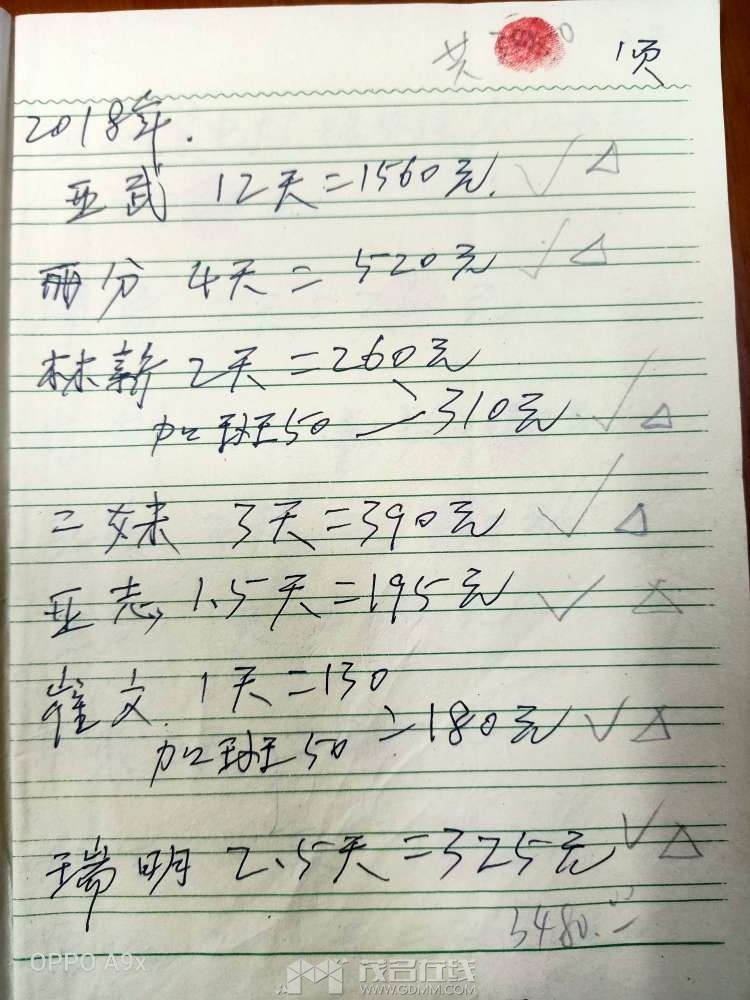 共
1页
2018年.
亚武 12天=1560元.
丽分 4天=520元
林新 2天=260元
加班50 >310元
二妹 3天=390元
亚志 1.5天=195元
崔文. 1天=130
加班50 >180元
瑞明 2.5天=325元
3480.00
OPPO A9x
茂名在线
WWW.GDMM.COM